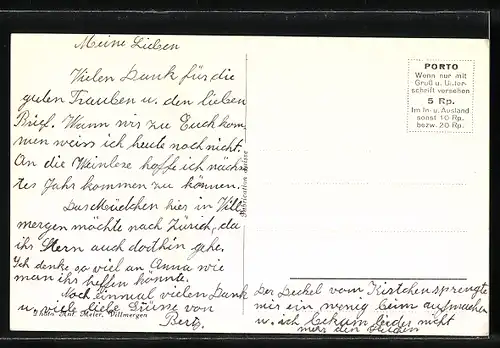 Meine Lieben
Vielen Dank für die
guten Trauben u. den lieben
Brief. Wann wir zu Euch kom,
men weiss ich heute noch nicht.
An die Weinlese hoffe ich nächs,
tes Jahr kommen zu können.
Das Mädchen hier in Vill,
mergen möchte nach Zürich, da
ihr Stern auch dorthin gehe.
Ich denke so viel an Anna wie
man ihr helfen könnte.
Noch einmal vielen Dank
u. viele liebe Grüsse von
Photo Mut. Meier, Villmergen
PORTO
Wenn nur mit
Gruß u. Unter-
schrift versehen
5 Rp.
Im In- u. Ausland
sonst 10 Rp.
bezw. 20 Rp.
Der Deckel vom Kistchen sprengte
mir ein wenig beim aufmachen
u. ich bekam leider nicht
mehr den